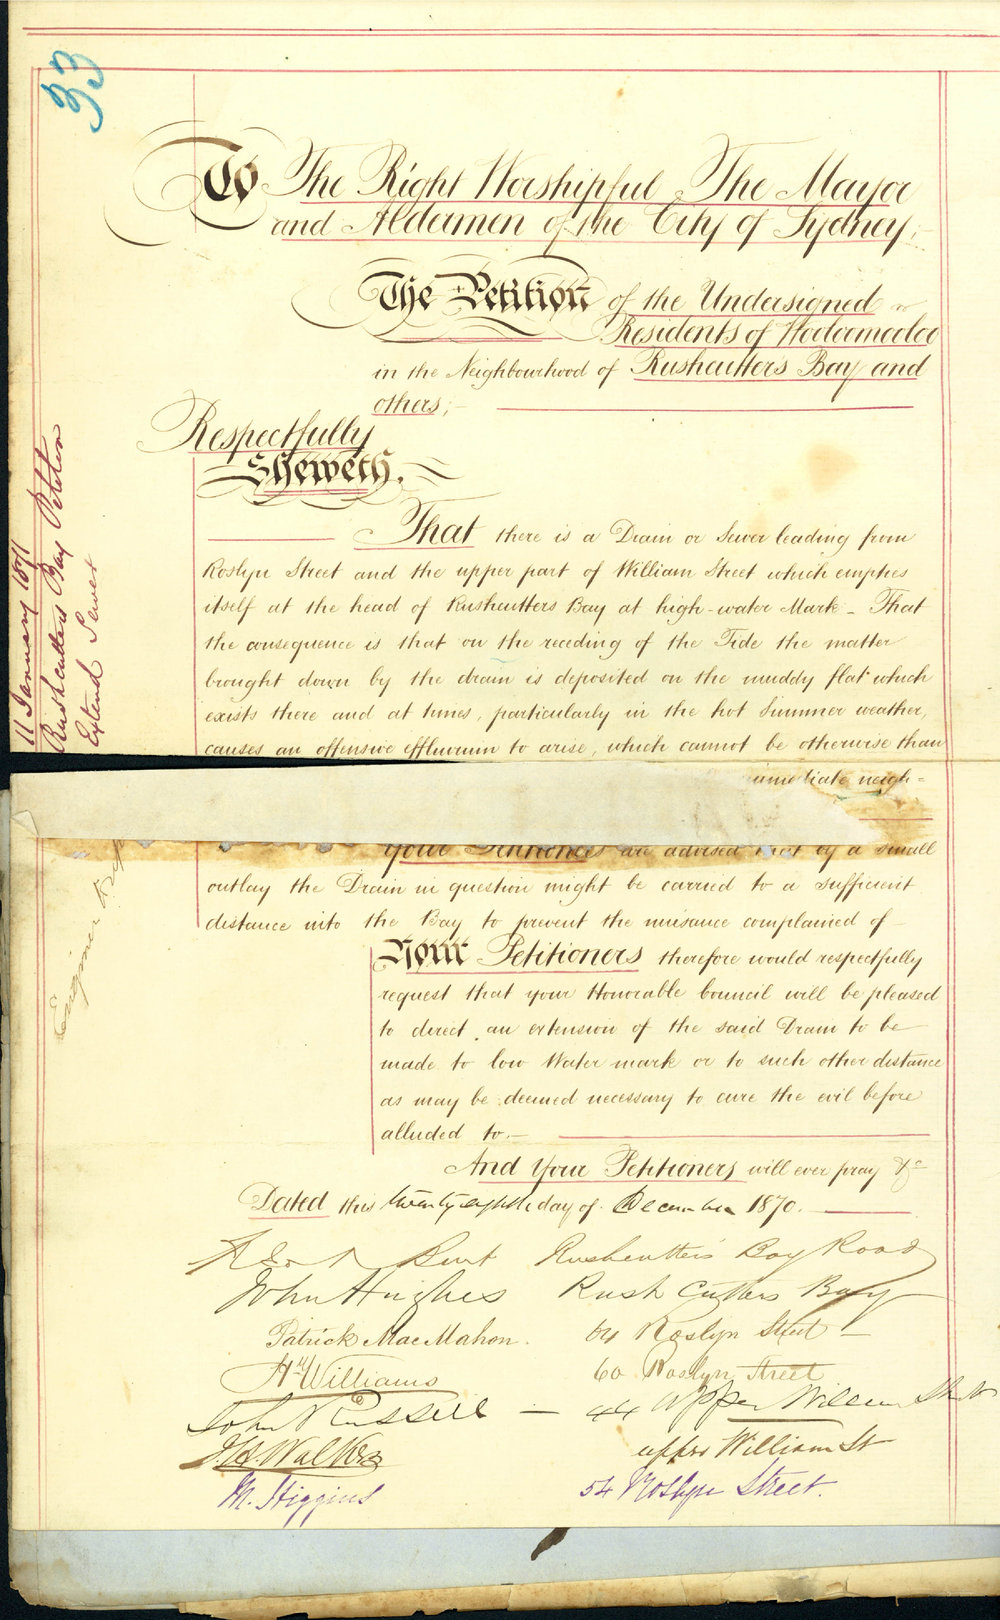 33
To The Right Worshipful The Mayor
and Aldermen of the City of Sydney;
The Petition of the Undersigned
Residents of Wooloomooloo
in the Neighbourhood of Rushcutters Bay and
others;
Respectfully
Sheweth.
That there is a Drain or Sewer leading from
Roslyn Street and the upper part of William Street which empties
itself at the head of Rushcutters Bay at high-water Mark - That
the consequence is that on the receding of the Tide the matter
brought down by the drain is deposited on the muddy flat which
exists there and at times, particularly in the hot Summer weather,
causes an offensive effluvium to arise, which cannot be otherwise than
immediate neigh=
Your Petitioners are advised that by a small
outlay the Drain in question might be carried to a sufficient
distance into the Bay to prevent the nuisance complained of
Your Petitioners therefore would respectfully
request that your Honorable Council will be pleased
to direct an extension of the said Drain to be
made to low Water mark or to such other distance
as may be deemed necessary to cure the evil before
alluded to.-
And Your Petitioners will ever pray &c
Dated this twentyeighth day of December 1870.
Rushcutters Bay Road
John Hughes Rush Cutters Bay
Patrick MacMahon. 64 Roslyn Street
Hy Williams 60 Roslyn Street
John Russell - 44 Upper William Street
J.H. Walker upper William St
M. Higgins 54 Roslyn Street.
11 January 1871
Rushcutters Bay Petition
Extend Sewer
Engineer